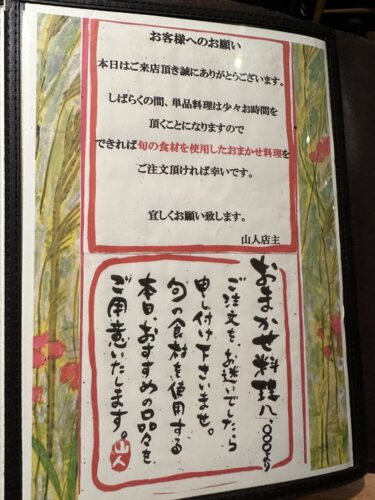 お客様へのお願い
本日はご来店頂き誠にありがとうございます。
しばらくの間、単品料理は少々お時間を
頂くことになりますので
できれば旬の食材を使用したおまかせ料理を
ご注文頂ければ幸いです。
宜しくお願い致します。
山人店主
おまかせ料理八、000より
ご注文を、お迷いでしたら
申し付け下さいませ。
旬の食材を使用する
本日、おすすめの品々を
ご用意いたします。
山人